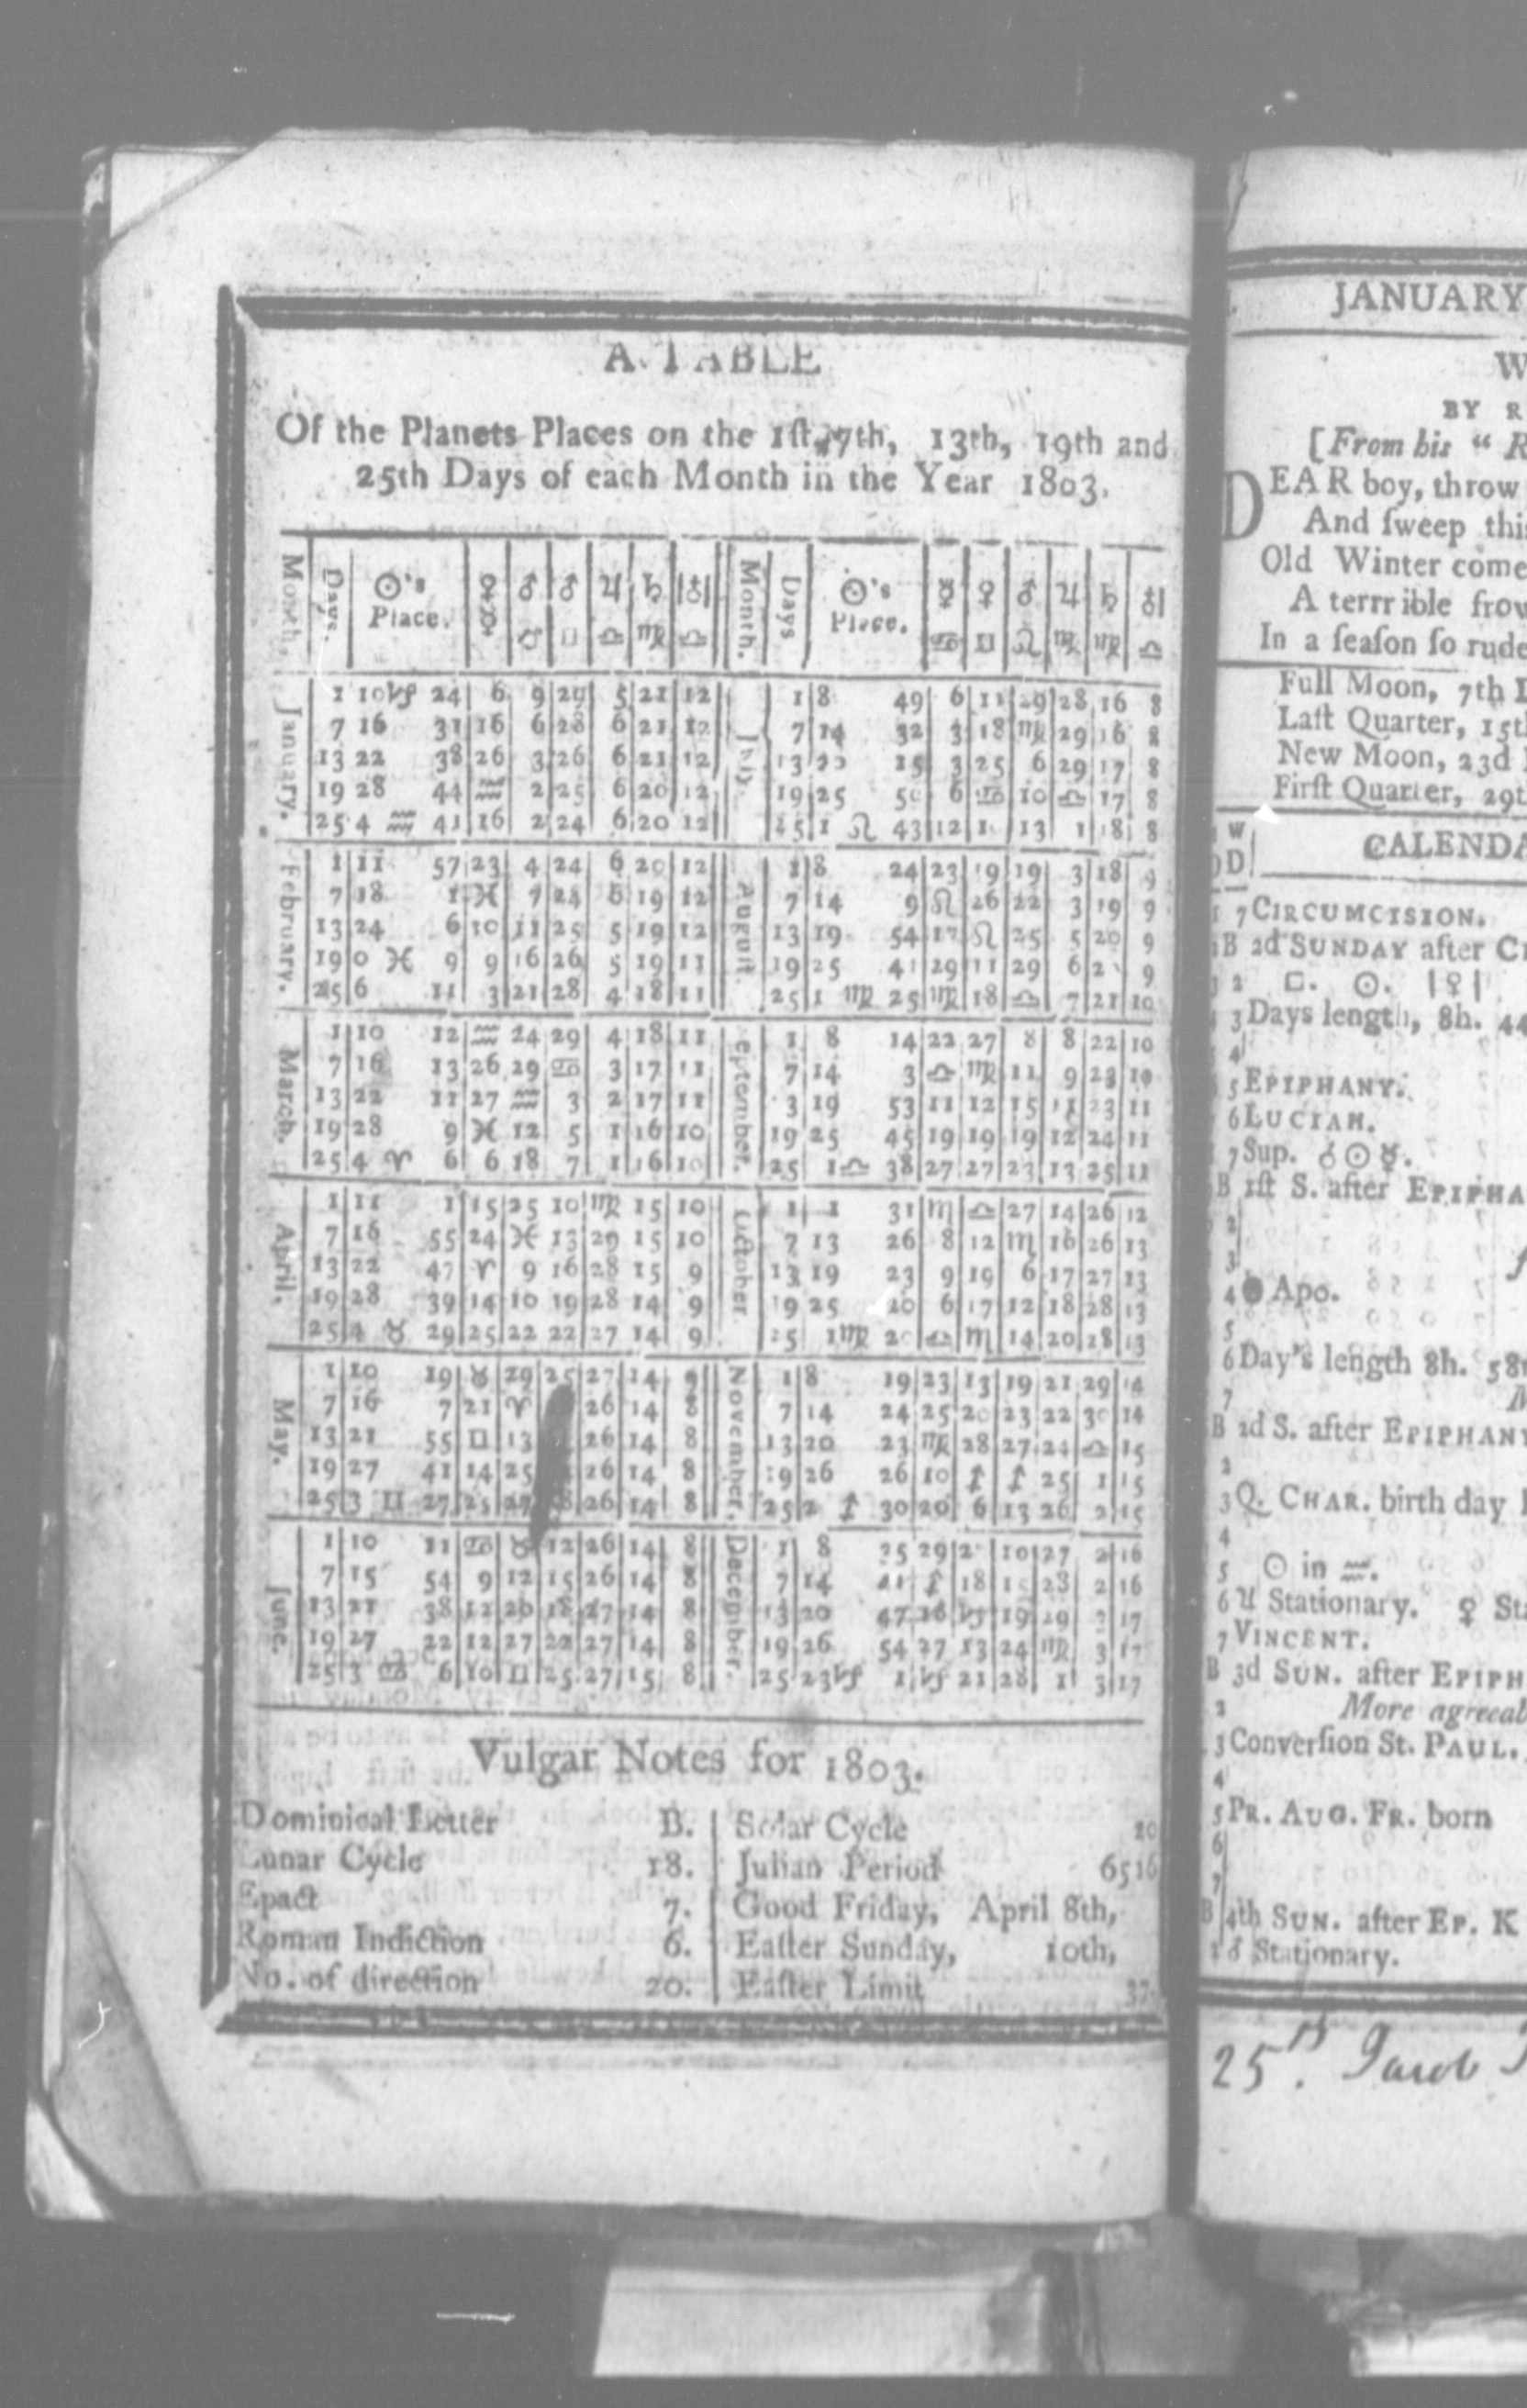 A TABLE
Of the Planets Places on the 1ſt, 7th, 13th, 19th and
25th Days of each Month in the Year 1803.
Month. Days. ☉'s Place. ♀ ♂ ♂ ♃ ♄ |♁| Month. Days ☉'s Place. ☿ ♀ ♂ ♃ ♄ ♁|
☿ ♂ □ ♎ ♍ ♎ ♋ □ ♌ ♍ ♍ ♎
January.
1 10 ♑ 24 6 9 29 5 21 12
7 16 31 16 6 28 6 21 12
13 22 38 26 3 26 6 21 12
19 28 44 ♒ 2 25 6 20 12
25 4 ♒ 41 16 2 24 6 20 12
July.
1 8 49 6 11 29 28 16 8
7 14 32 3 18 ♍ 29 16 8
13 20 15 3 25 6 29 17 8
19 25 6 ♋ 10 ♎ 17 8
25 1 ♌ 43 12 13 1 18 8
February.
1 11 57 23 4 24 6 20 12
7 18 1 ♓ 7 24 6 19 12
13 24 6 10 11 25 5 19 12
19 0 ♓ 9 9 16 26 5 19 11
25 6 11 3 21 28 4 18 11
Auguſt.
1 8 24 23 19 19 3 18 9
7 14 9 ♌ 26 22 3 19 9
13 19 54 17 ♌ 25 5 20 9
19 25 41 29 11 29 6 9
25 1 ♍ 25 ♍ 18 ♎ 7 21 10
March.
1 10 12 ♒ 24 29 4 18 11
7 16 13 26 29 ♋ 3 17 11
13 22 11 27 ♒ 3 2 17 11
19 28 9 ♓ 12 5 1 16 10
25 4 ♈ 6 6 18 7 1 16 10
eptember.
1 8 14 22 27 8 8 22 10
7 14 3 ♎ ♍ 11 9 23 10
3 19 53 11 12 15 11 23 11
19 25 45 19 19 19 12 24 11
25 1 ♎ 38 27 27 23 13 25 11
April.
1 11 1 15 25 10 ♍ 15 10
7 16 55 24 ♓ 13 29 15 10
13 22 47 ♈ 9 16 28 15 9
19 28 39 14 10 19 28 14 9
25 4 ♉ 29 25 22 22 27 14 9
October.
1 1 31 ♏ ♎ 27 14 26 12
7 13 26 8 12 ♏ 16 26 13
13 19 23 9 19 6 17 27 13
19 25 20 6 17 12 18 28 13
25 1 ♍ 20 ♎ ♏ 14 20 28 13
May.
1 10 19 ♉ 29 25 27 14 9
7 16 7 21 ♈ 26 14 8
13 21 55 ♊ 13 26 14 8
19 27 41 14 25 26 14 8
25 3 ♊ 27 25 27 8 26 14 8
November.
1 8 19 23 13 19 21 29 14
7 14 24 25 20 23 22 30 14
13 20 23 ♍ 28 27 24 ♎ 15
19 26 26 10 ♐ ♐ 25 1 15
25 2 ♐ 30 20 6 13 26 2 15
June.
1 10 11 ♋ ♉ 12 26 14 8
7 15 54 9 12 15 26 14 8
13 21 38 12 20 18 27 14 8
19 27 22 12 27 22 27 14 8
25 3 ♋ 6 10 ♊ 25 27 15 8
December.
1 8 35 29 2 10 27 2 16
7 14 41 ♐ 18 15 28 2 16
13 20 47 16 ♑ 19 29 3 17
19 26 54 27 13 24 ♍ 3 17
25 23 ♑ 1 ♑ 21 28 1 3 17
Vulgar Notes for 1803.
Dominical Letter B. | Solar Cycle 20
Lunar Cycle 18. | Julian Period 6516
Epact 7. | Good Friday, April 8th,
Roman Indiction 6. | Eaſter Sunday, 10th,
No. of direction 20. | Eaſter Limit 37.
JANUARY
W
BY R
[From his " R
DEAR boy, throw
And ſweep thi
Old Winter come
A terrr ible frow
In a ſeaſon ſo rude
Full Moon, 7th D
Laſt Quarter, 15th
New Moon, 23d
Firſt Quarter, 29t
W
D CALENDA
7 CIRCUMCISION.
B 2d SUNDAY after C
2 □. ☉. |♀|
3 Days length, 8h. 44
4
5 EPIPHANY.
6 LUCIAN.
7 Sup. ☌ ☉ ☿.
B 1ſt S. after EPIPHA
2
3
4 Apo.
5
6 Day's length 8h. 58
7
B 2d S. after EPIPHANY
2
3 Q. CHAR. birth day
4
5 ☉ in ♒.
6 ♃ Stationary. ♀ Sta
7 VINCENT.
B 3d SUN. after EPIPH
2 More agreeab
3 Converſion St. PAUL.
4
5 PR. AUG. FR. born
6
7
B 4th SUN. after EP. K
2 ♂ Stationary.
25th. Jacob